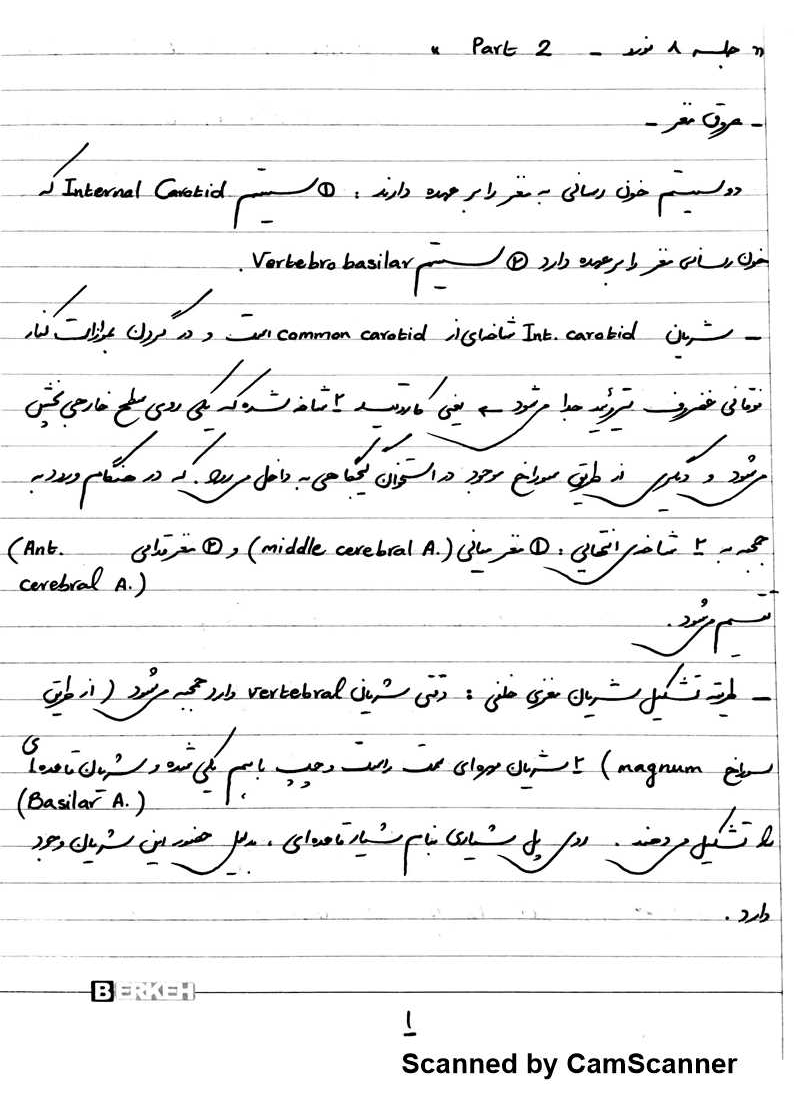 « جلسه ۸ نورو - Part 2 »
- عروق مغز -
دو سیستم خون رسانی به مغز را بر عهده دارند : ① سیستم Internal Carotid که
خون رسانی مغز را بر عهده دارد ② سیستم Vertebro basilar .
- شریان Int. carotid شاخه‌ای از common carotid است و در گردن به موازات کنار
فوقانی غضروف تیروئید جدا می‌شود ← یعنی کاروتید ۲ شاخه شده که یکی روی سطح خارجی پخش
می‌شود و دیگری از طریق سوراخ موجود در استخوان گیجگاهی به داخل می‌رود . که در هنگام ورود به
جمجمه به ۲ شاخه‌ی انتهایی : ① مغز میانی (middle cerebral A.) و ② مغز قدامی (Ant.
cerebral A.)
تقسیم می‌شود .
- طریقه تشکیل شریان مغزی خلفی : وقتی شریان vertebral وارد جمجمه می‌شود ( از طریق
سوراخ magnum ) ۲ شریان مهره‌ای سمت راست و چپ با هم یکی شده و شریان قاعده‌ای
(Basilar A.)
را تشکیل می‌دهند . روی پل شیاری بنام شیار قاعده‌ای ، بدلیل حضور این شریان وجود
دارد .
BERKEH
1
Scanned by CamScanner